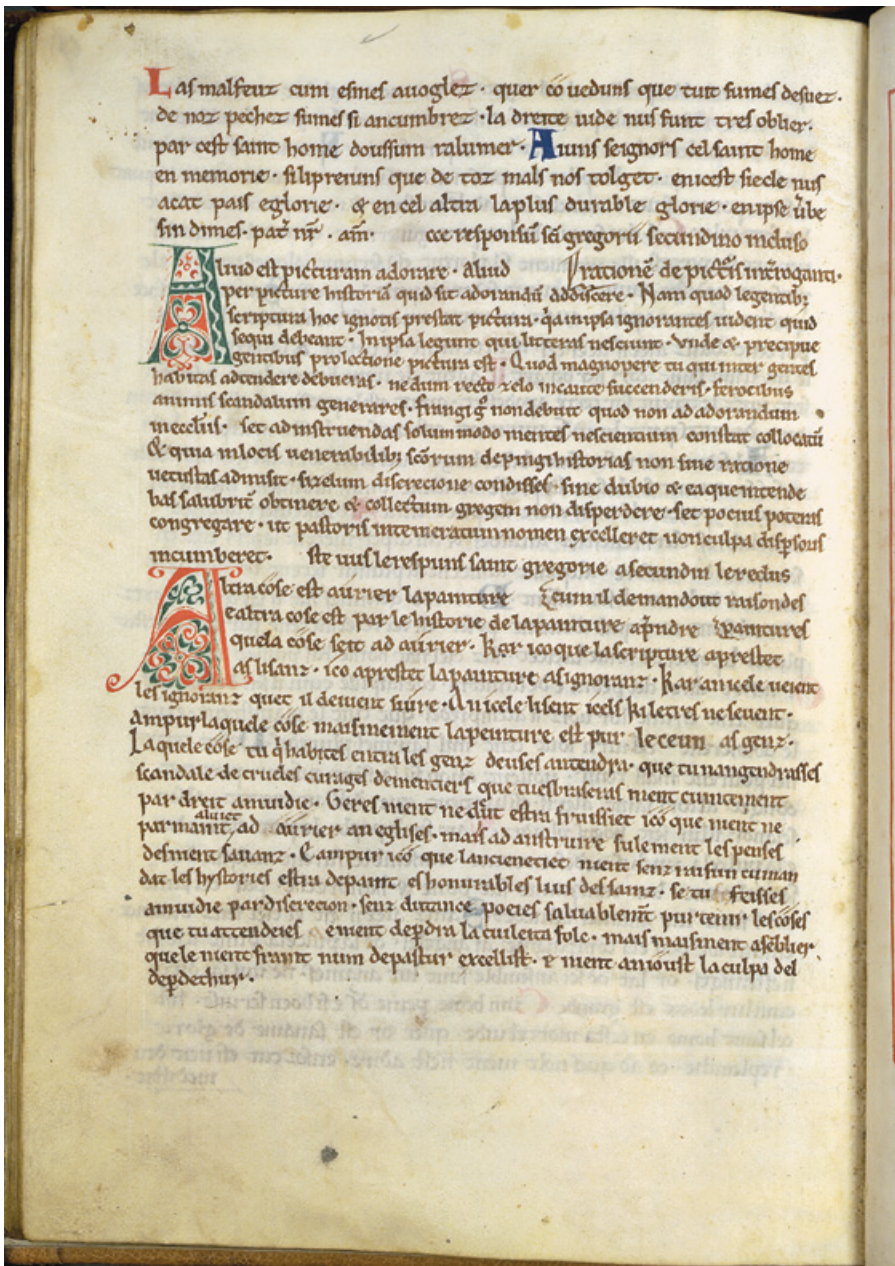 Las malfeuz cum esmes auoglez · quer ço ueduns que tuit sumes desuez ·
de noz pechez sumes si ancumbrez · la dreite uide nus funt tres oblier.
par cest saint home doussum ralumer · Aiuns seignors cel saint home
en memorie · si li preiuns que de toz mals nos tolget · en icest siecle nus
acat pais e glorie · & en cel altra la plus durable glorie · en ipse ūbe
sin dimes · pat̄ nr̄ · am̄ · cce responsū sc̄i gregorii secundino incluso
Aliud est picturam adorare · Aliud rationē de picturis int̄roganti ·
per picture historiā quid sit adorandū addiscere · Nam quod legentibꝫ
scriptura hoc ignotis prestat pictura · q̇a in ipsa ignorantes uident quid
sequi debeant · In ipsa legunt qui litteras nesciunt · Vnde & precipue
gentibus pro lectione pictura est · Quod magnopere tu qui inter gentes
habitas adtendere debueras · ne dum recto zelo incaute succenderis · ferocibus
animis scandalum generares · frangi g̊ non debuit quod non ad adorandum
in ecclīis · set ad instruendas solummodo mentes nescientium constat collocatū
& quia in locis uenerabilibꝫ sc̄orum depingi historias non sine ratione
uetustas admisit · si zelum discrecione condisses · sine dubio & ea que intende
bas salubrit̄ obtinere & collectum gregem non disperdere · set pocius poteras
congregare · ut pastoris intemeratum nomen excelleret non culpa disp̱soris
incumberet · ste uus le respuns saint gregorie a secundin le reclus
Altra cose est aürier la painture cum il demandout raison des
e altra cose est par le historie de la painture ap̄ndre paintures
quela cose seit ad aürier · Kar ico que la scripture aprestet
as lisanz · ico aprestet la painture as ignoranz · Kar an icele ueient
les ignoranz quet il deiuent siure · An icele lisent icels ki letres ne seuent ·
ampur laquele cose maismement la peinture est pur leceun as genz ·
Laquele cose tu q̇ habites entra les genz deuses antendra · que tu n angendrasses
scandale de crueles curages dementiers que tu esbraseras nient cuintement
par dreit amuidie · Geres nient ne dut estra fruissiet ico que nient ne
aluiet
parmaint ad aürier an eglises · mais ad anstruire sulement les penses
des nient sauanz · Campur ico que l ancienetiet nient senz raisun cuman
dat les hystories estra depaint es honurables lius des sainz · se tu feisses
amuidie par discrecion · senz dutance poeies saluablem̄t purtenir les coses
que tu attendeies e nient dep̱dra la cuileita folc · mais maisment asēblier
que le nient frait num de pastur excellist · e nient anioust la culpa del
dep̱dethur ·